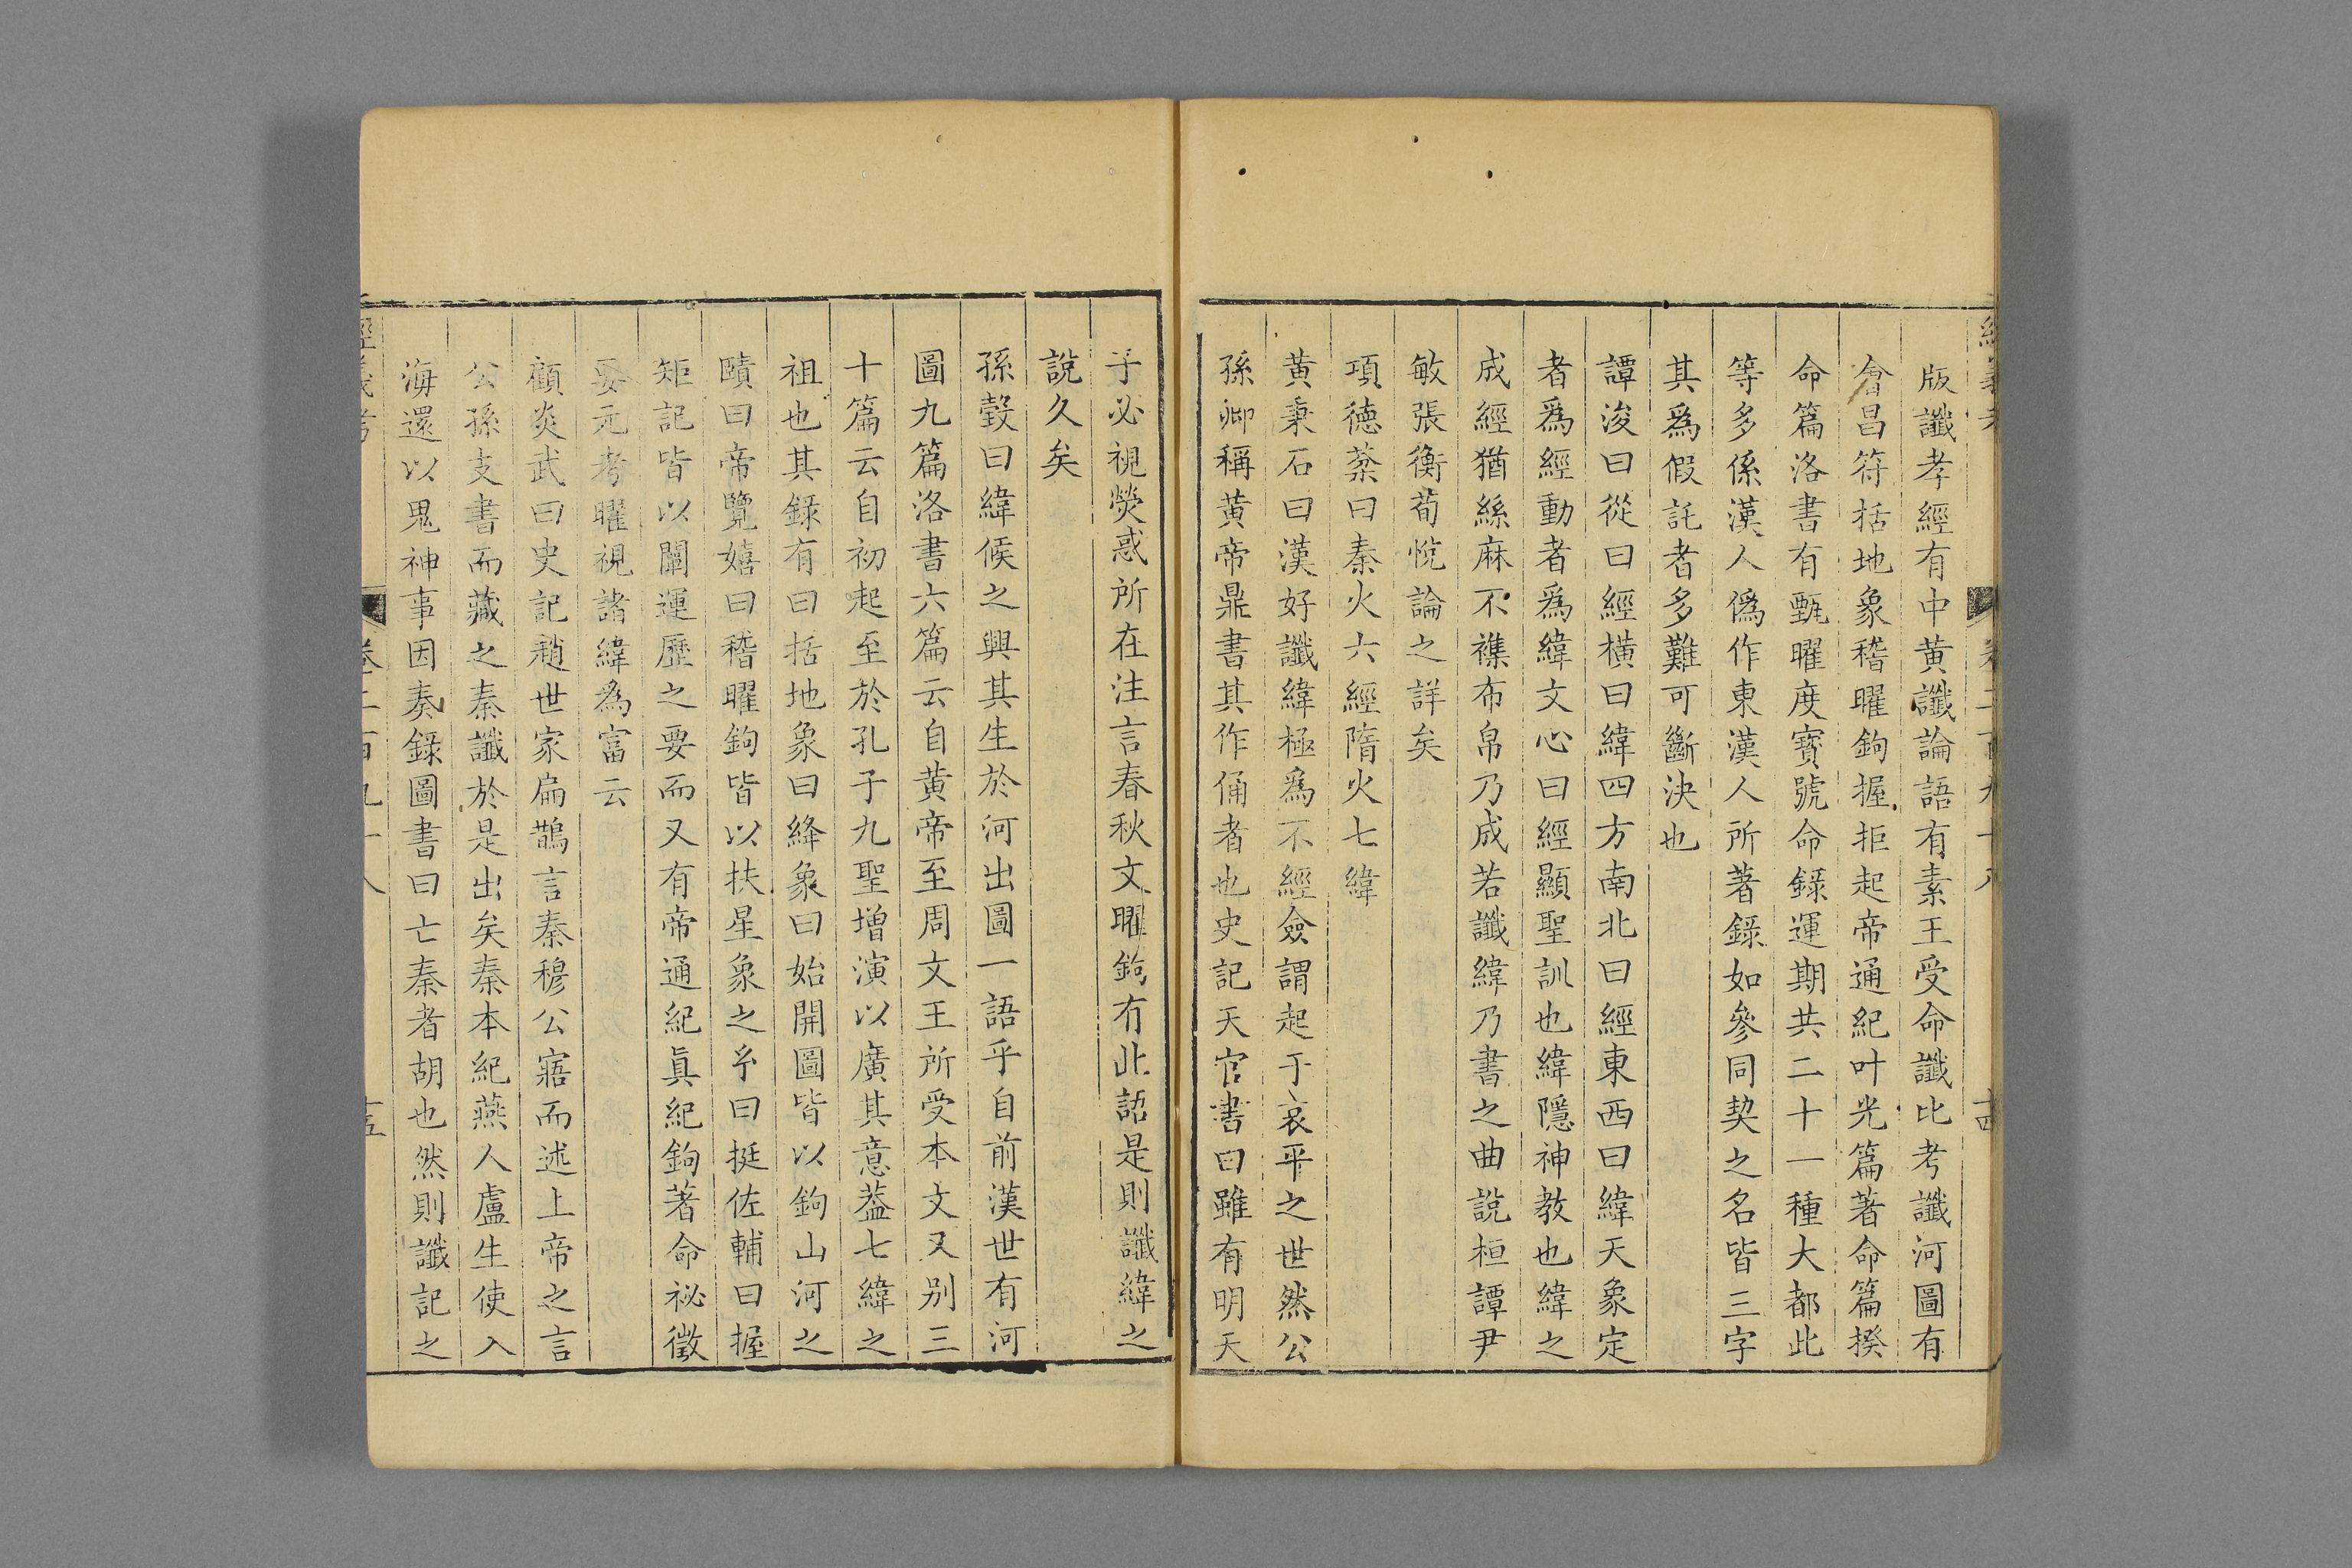 版讖孝經有中黄讖論語有素王受命讖比考讖河圖有
會昌符括地象稽曜鉤握拒起帝通紀叶光篇著命篇揆
命篇洛書有甄曜度寳號命錄運期共二十一種大都此
等多係漢人僞作東漢人所著錄如參同契之名皆三字
其爲假託者多難可斷決也
譚浚曰從曰經橫曰緯四方南北曰經東西曰緯天象定
者爲經動者爲緯文心曰經顯聖訓也緯隱神教也緯之
成經猶絲麻不襍布帛乃成若讖緯乃書之曲說桓譚尹
敏張衡荀悅論之詳矣
項德棻曰秦火六經隋火七緯
黄秉石曰漢好讖緯極爲不經僉謂起于哀平之世然公
孫卿稱黄帝鼎書其作俑者也史記天官書曰雖有明天
子必視熒惑所在注言春秋文曜鉤有此語是則讖緯之
說久矣
孫瑴曰緯候之興其生於河出圖一語乎自前漢世有河
圖九篇洛書六篇云自黄帝至周文王所受本文又别三
十篇云自初起至於孔子九聖增演以廣其意葢七緯之
祖也其錄有曰括地象曰絳象曰始開圖皆以鉤山河之
賾曰帝覽嬉曰稽曜鉤皆以扶星象之乎曰挺佐輔曰握
矩記皆以闡運歷之要而又有帝通紀眞紀鉤著命祕徵
要元考曜視諸緯爲富云
顧炎武曰史記趙世家扁鵲言秦穆公寤而述上帝之言
公孫支書而藏之秦讖於是出矣秦本紀燕人盧生使入
海還以鬼神事因奏錄圖書曰亡秦者胡也然則讖記之
經義考
卷二百九十八
十五